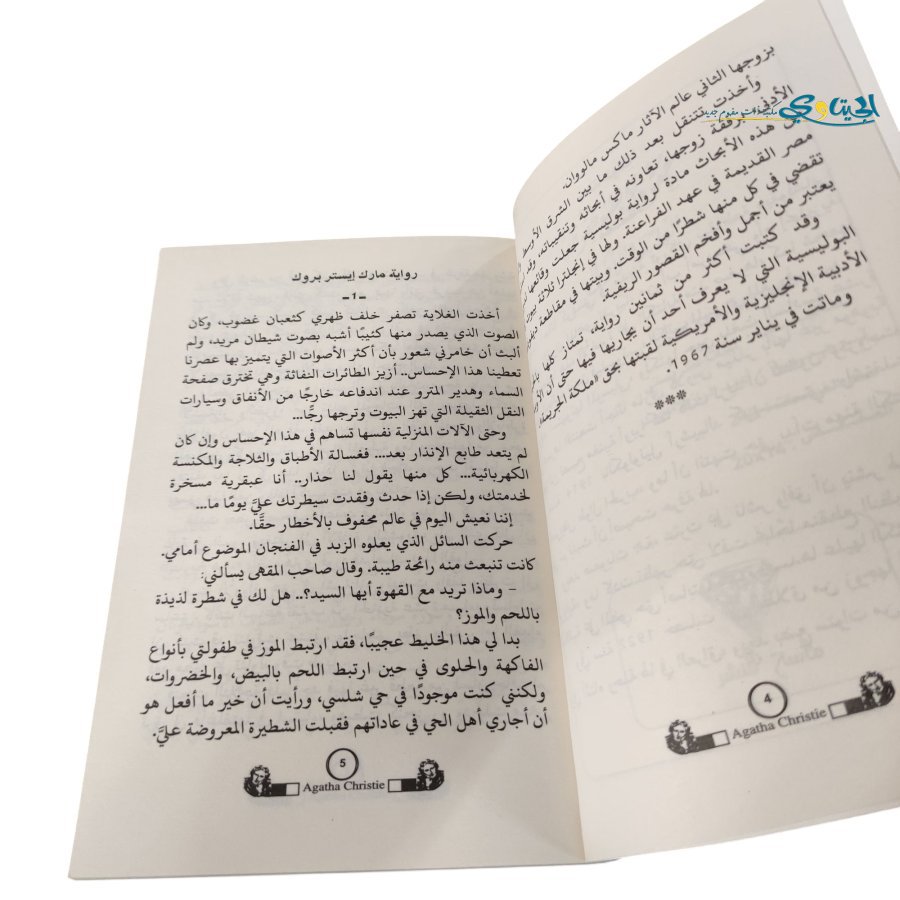 بزوجها الثاني عالم الآثار ماكس مالووان.
وأخذت تتنقل بعد ذلك ما بين الشرق الأوسط
الأدنى برفقة زوجها، تعاونه في أبحاثه وتنقيباته. وقد
هذه الأبحاث مادة لرواية بوليسية جعلت وقائعها
مصر القديمة في عهد الفراعنة. ولها في إنجلترا ثلاثة بيوت
تقضي في كل منها شطرًا من الوقت. وبيتها في مقاطعة
يعتبر من أجمل وأفخم القصور الريفية.
وقد كتبت أكثر من ثمانين رواية، تمتاز كلها
البوليسية التي لا يعرف أحد أن يجاريها فيها حتى أن
الأدبية الإنجليزية والأمريكية لقبتها بحق «ملكة الجريمة»
وماتت في يناير سنة 1967.
***
4
Agatha Christie
رواية مارك إيستر بروك
-1-
أخذت الغلاية تصفر خلف ظهري كثعبان غضوب، وكان
الصوت الذي يصدر منها كئيبًا أشبه بصوت شيطان مريد، ولم
ألبث أن خامرني شعور بأن أكثر الأصوات التي يتميز بها عصرنا
تعطينا هذا الإحساس.. أزيز الطائرات النفاثة وهي تخترق صفحة
السماء وهدير المترو عند اندفاعه خارجًا من الأنفاق وسيارات
النقل الثقيلة التي تهز البيوت وترجها رجًّا...
وحتى الآلات المنزلية نفسها تساهم في هذا الإحساس وإن كان
لم يتعد طابع الإنذار بعد... فغسالة الأطباق والثلاجة والمكنسة
الكهربائية... كل منها يقول لنا حذار.. أنا عبقرية مسخرة
لخدمتك، ولكن إذا حدث وفقدت سيطرتك عليَّ يومًا ما...
إننا نعيش اليوم في عالم محفوف بالأخطار حقًّا.
حركت السائل الذي يعلوه الزبد في الفنجان الموضوع أمامي.
كانت تنبعث منه رائحة طيبة. وقال صاحب المقهى يسألني:
- وماذا تريد مع القهوة أيها السيد؟.. هل لك في شطرة لذيذة
باللحم والموز؟
بدا لي هذا الخليط عجيبًا، فقد ارتبط الموز في طفولتي بأنواع
الفاكهة والحلوى في حين ارتبط اللحم بالبيض، والخضروات،
ولكنني كنت موجودًا في حي شلسي، ورأيت أن خير ما أفعل هو
أن أجاري أهل الحي في عاداتهم فقبلت الشطيرة المعروضة عليَّ.
5
Agatha Christie